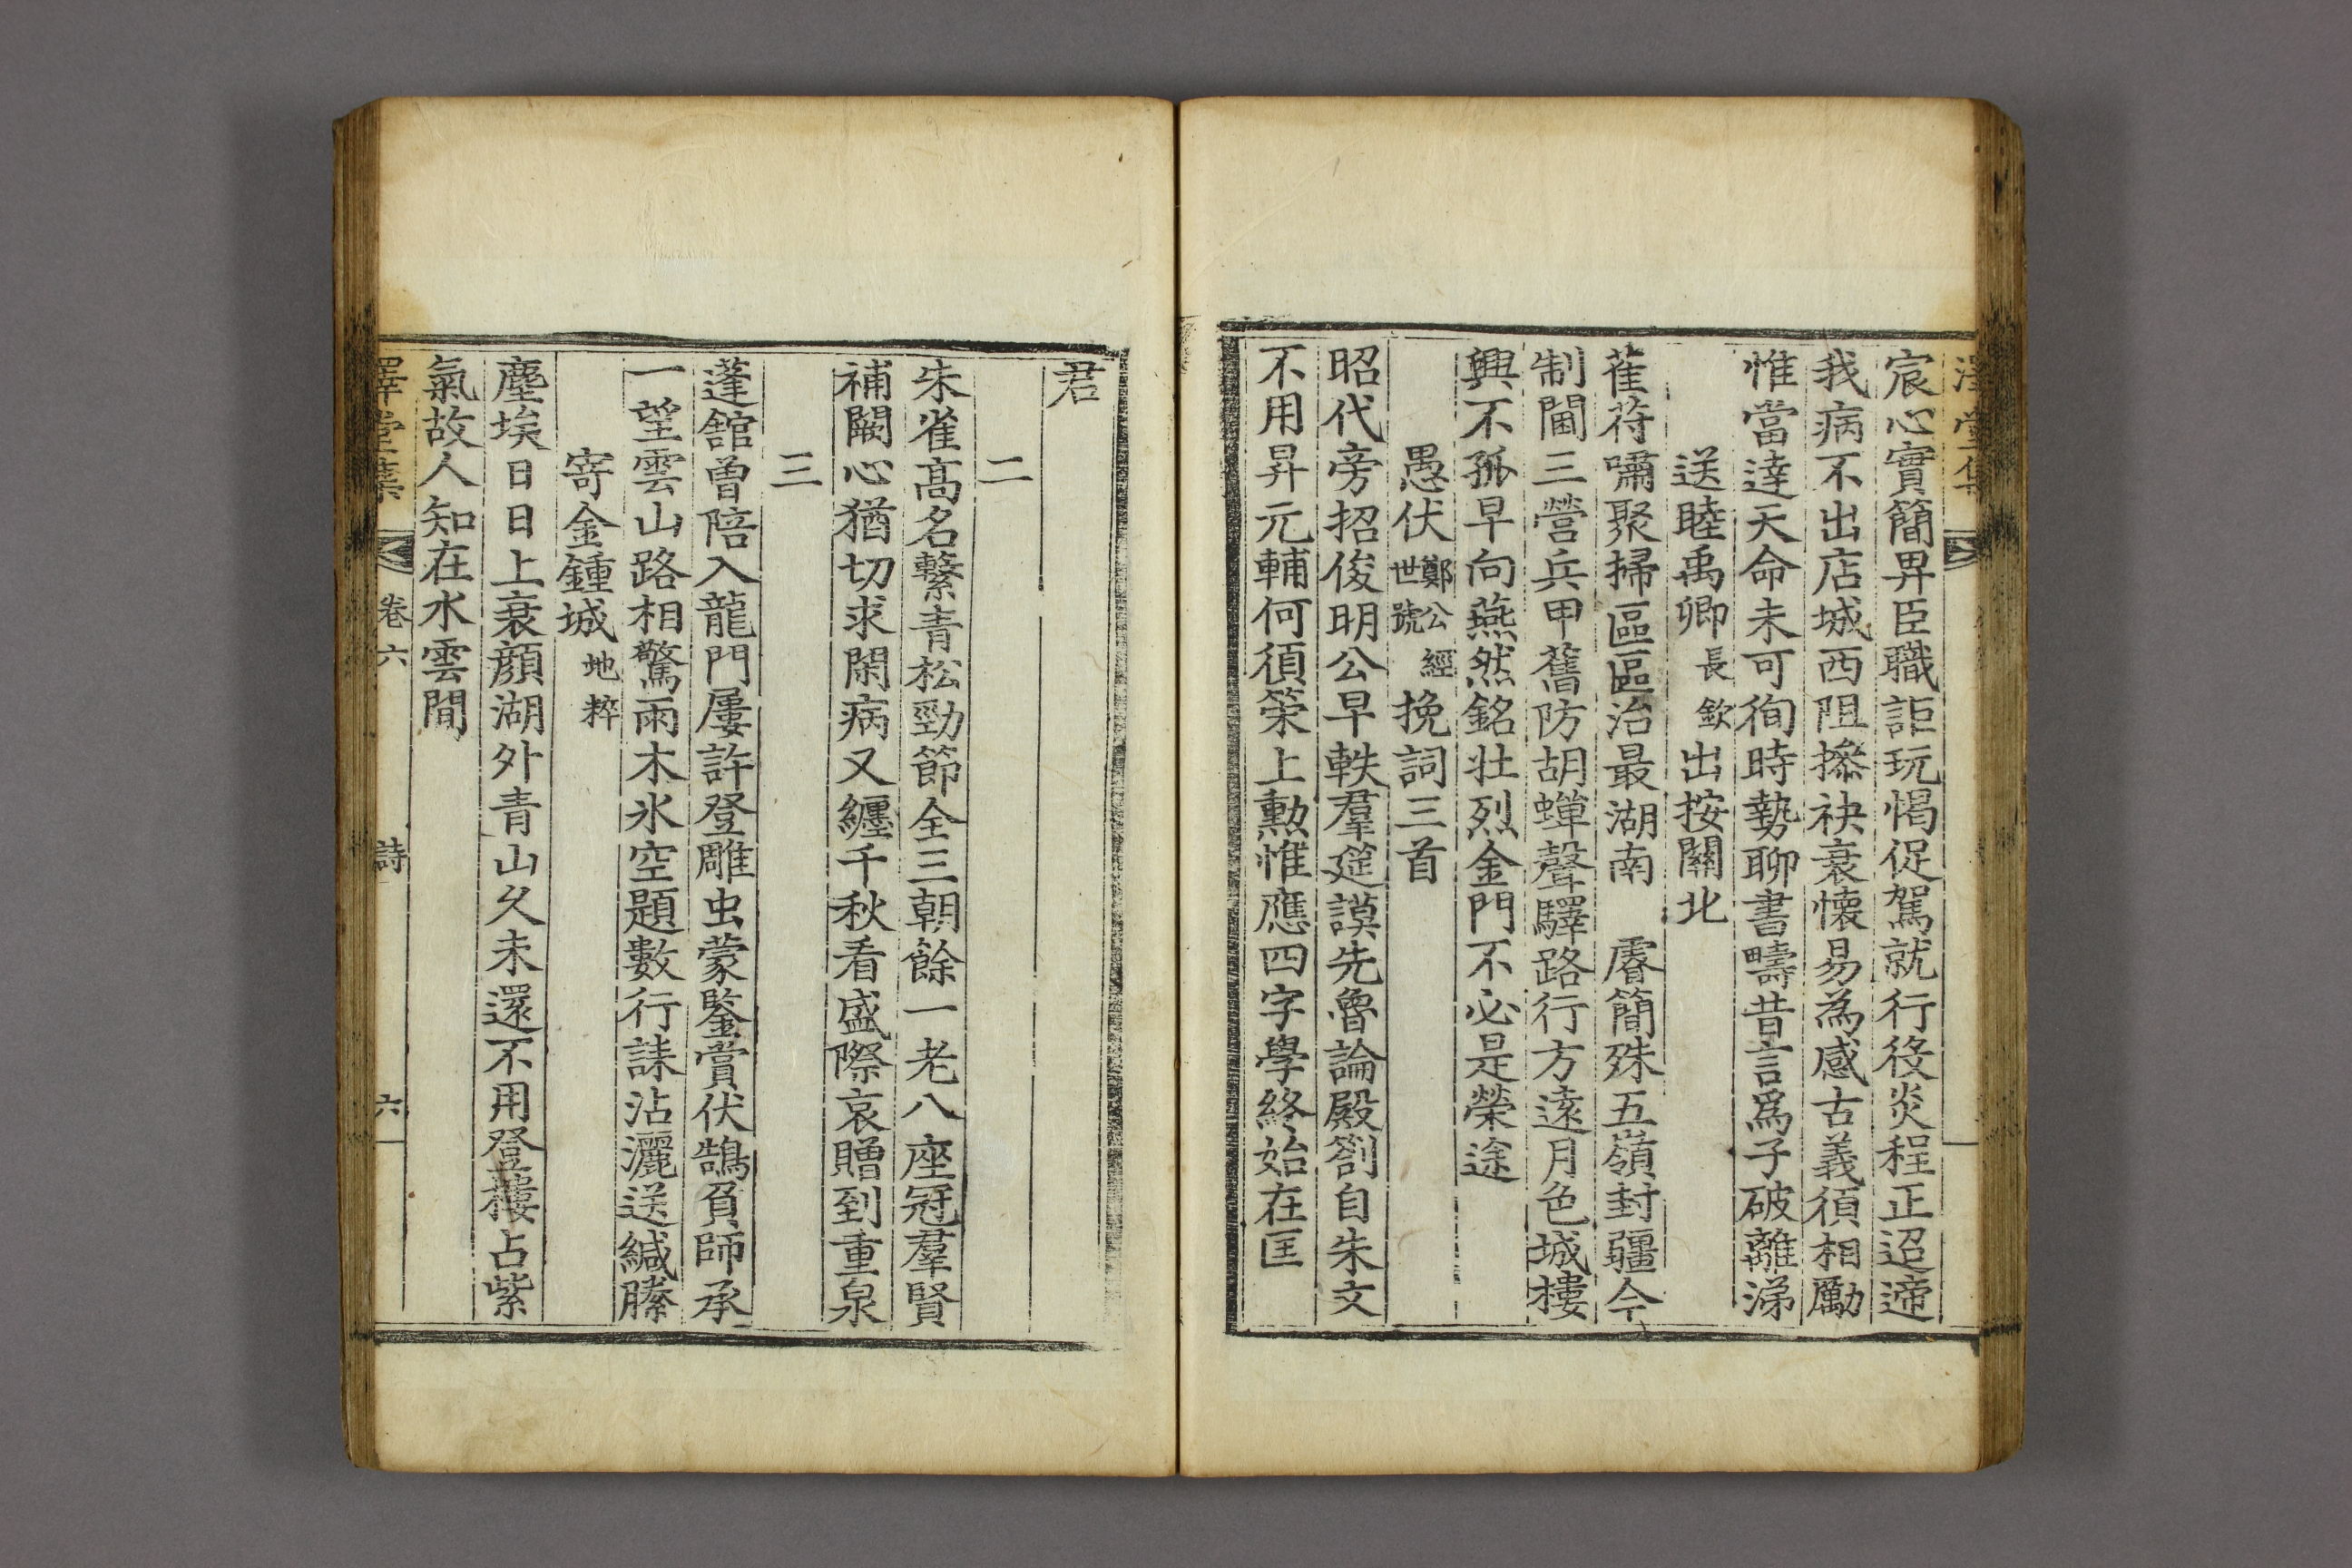 澤堂集
宸心實簡畀臣職詎玩愒促駕就行役炎程正迢遰
我病不出店城西阻摻袂衰懷易為感古義須相勵
惟當達天命未可徇時勢聊書疇昔言爲子破離涕
送睦禹卿長欽出按關北
萑苻嘯聚掃區區治最湖南 睿簡殊五嶺封疆今
制閫三營兵甲舊防胡蟬聲驛路行方遠月色城樓
興不孤早向燕然銘壯烈金門不必是榮途
愚伏鄭公經世號挽詞三首
昭代旁招俊明公早軼羣筵謨先魯論殿劄自朱文
不用昇元輔何須策上勳惟應四字學終始在匡
君
二
朱雀高名繫青松勁節全三朝餘一老八座冠羣賢
補闕心猶切求閑病又纏千秋看盛際哀贈到重泉
三
蓬舘曾陪入龍門屢許登雕虫蒙鑒賞伏鵠負師承
一望雲山路相驚雨木氷空題數行誄沾灑送緘縢
寄金鍾城地粹
塵埃日日上衰顔湖外青山久未還不用登樓占紫
氣故人知在水雲間
澤堂集 卷六 詩 六